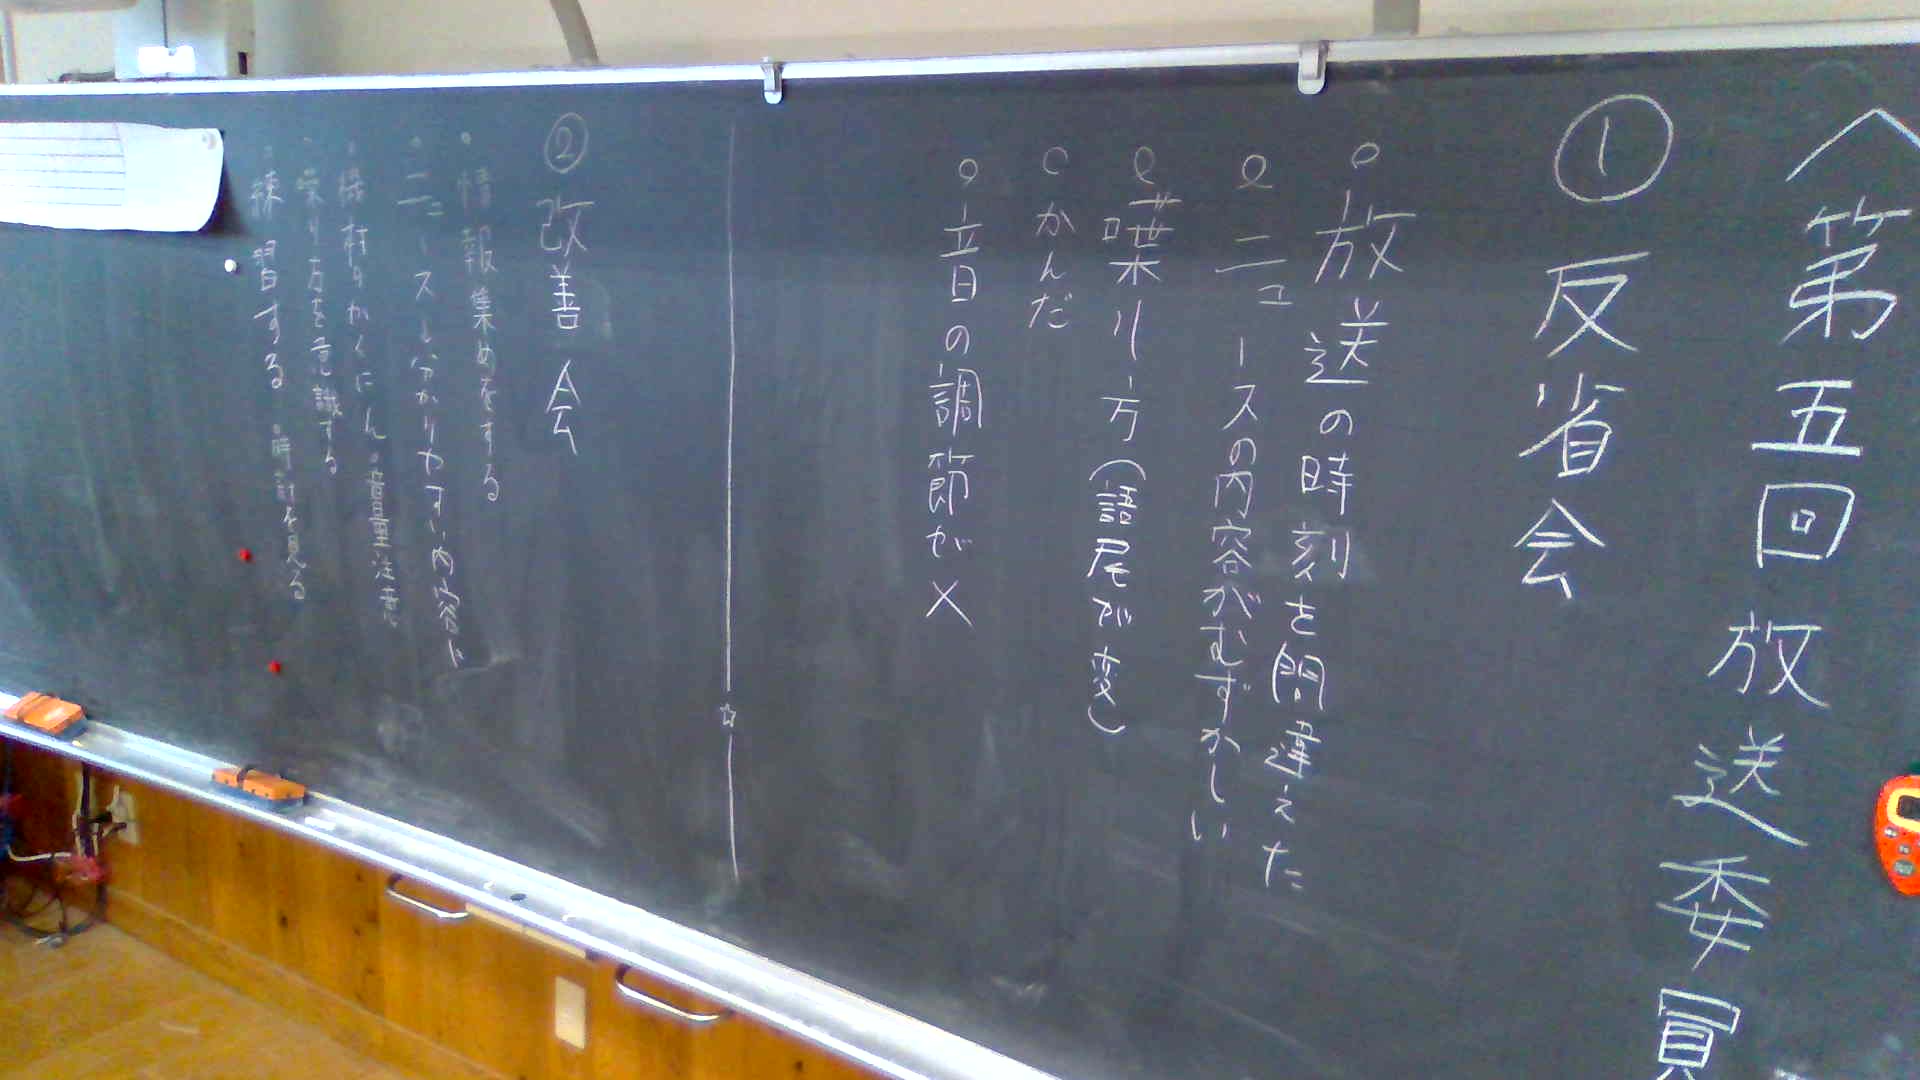 〈第五回放送委員
① 反省会
○放送の時刻を間違えた
○ニュースの内容がむずかしい
○喋り方(語尾が変)
○かんだ
○音の調節が×
② 改善会
○情報集めをする
○ニュースも分かりやすい内容に
○機材をかくにん。音量注意
○喋り方を意識する
○練習する ○時計を見る